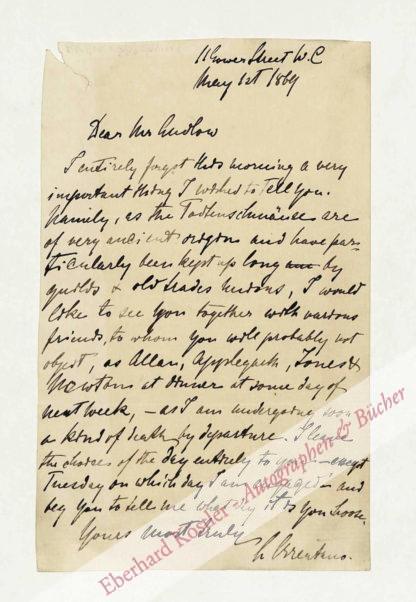 11 Gower Street W.C
May 1st 1869
Dear Mr Ludlow
I entirely forgot this morning a very
important thing I wished to tell you.
Namely, as the Todtenschmäuse are
of very ancient origin and have par-
ticularly been kept up long by
guilds & old trades unions, I would
like to see you together with various
friends, to whom you will probably not
object, as Allan, Applegarth, Jones &
Newton at dinner at some day of
next week, – as I am undergoing soon
a kind of death by departure. I leave
the choice of the day entirely to you – except
Tuesday on which day I am engaged and
beg you to tell me what day it is you choose.
Yours most truly
L. Brentano.
Eberhard Köstler - Autographen & Bücher